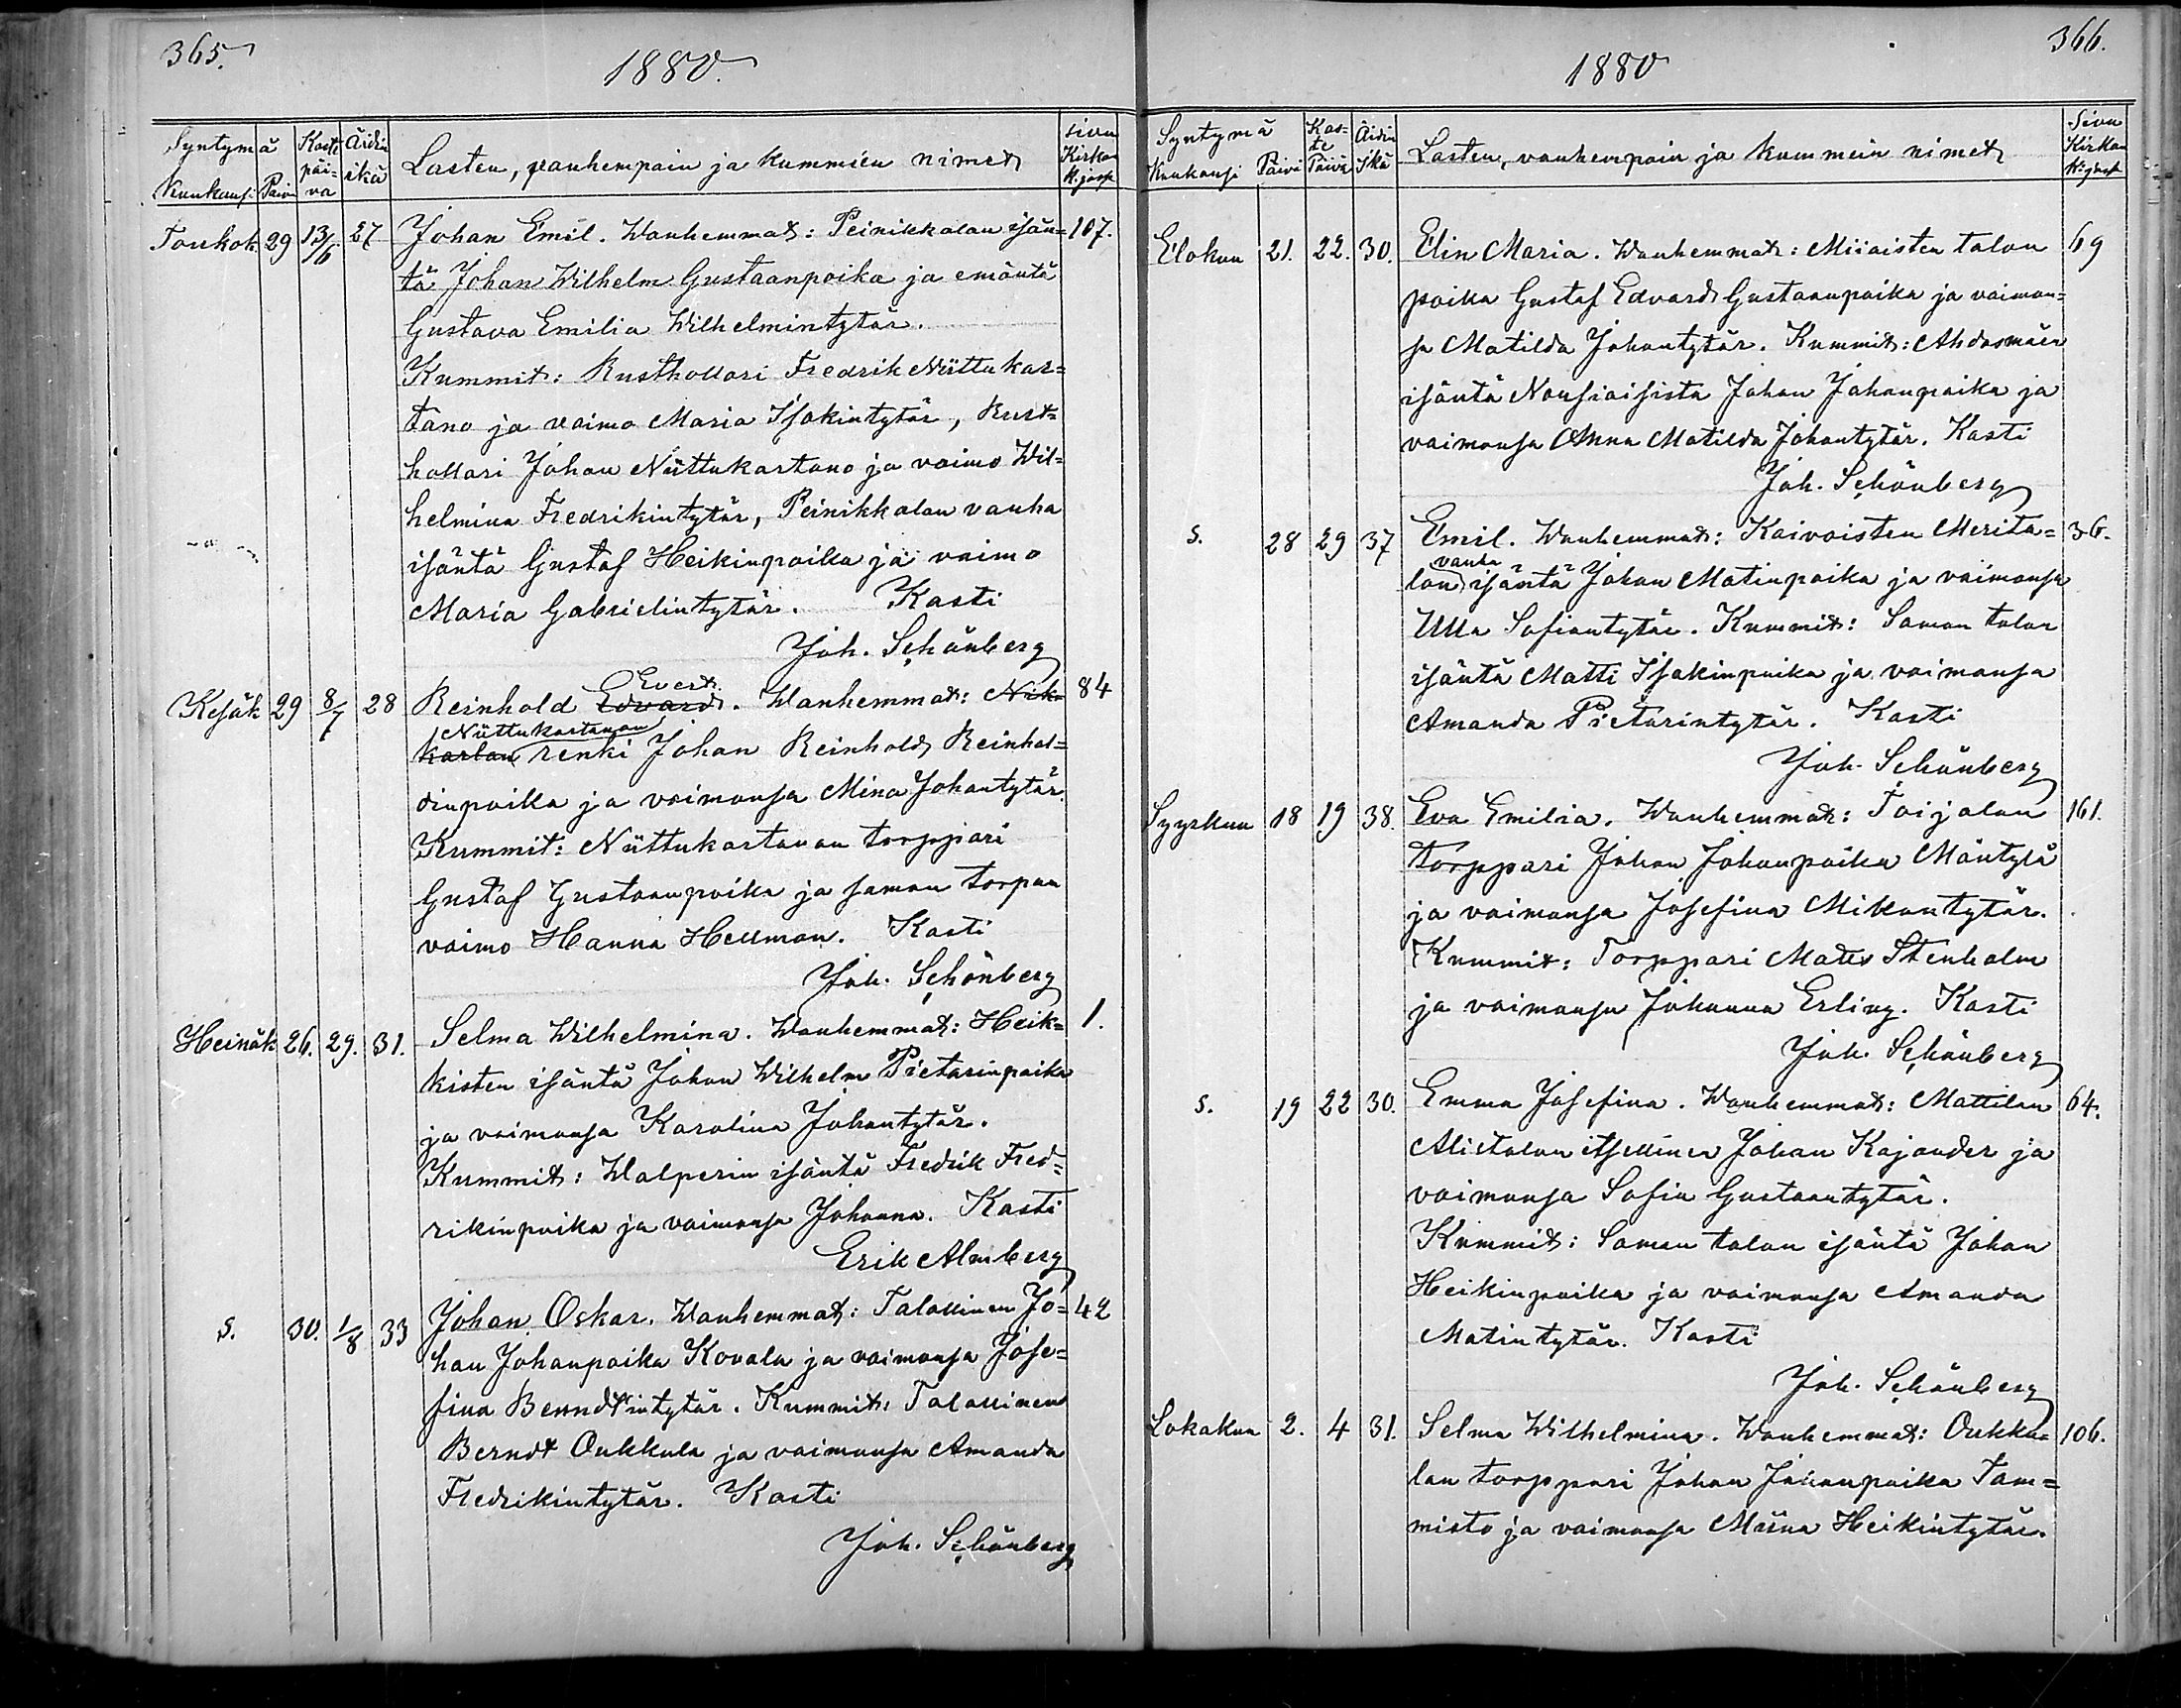 365.
1880.
Syntymä Kaste päivä Äidin ikä Lasten, vanhempain ja kummien nimet sivu Kirkon k. jasa
Kuukausi Päivä
Toukok. 29 13/6 27 Johan Emil. Wanhemmat: Peinikkalan isän= 107.
tä Johan Wilhelm Gustaanpoika ja emäntä
Gustava Emilia Wilhelmintytär.
Kummit: Rusthollari Fredrik Niittukar=
tano ja vaimo Maria Isakintytär, Rust=
hollari Johan Niittukartano ja vaimo Wil=
helmina Fredrikintytär, Peinikkalan vanha
isäntä Gustaf Heikinpoika ja vaimo
Maria Gabrielintytär. Kasti
Joh. Schönberg
Kesäk 29 8/7 28 Reinhold Edvard Evert. Wanhemmat: Nik= 84
karlan Niittukartanon renki Johan Reinhold Reinhol=
dinpoika ja vaimonsa Mina Johantytär.
Kummit: Niittukartanon torppari
Gustaf Gustaanpoika ja saman torpan
vaimo Hanna Hellman. Kasti
Joh. Schönberg
Heinäk 26. 29. 31. Selma Wilhelmina. Wanhemmat: Heik= 1.
kisten isäntä Johan Wilhelm Pietarinpoika
ja vaimonsa Karolina Johantytär.
Kummit: Walperin isäntä Fredrik Fred=
rikinpoika ja vaimonsa Johanna. Kasti
Erik Almberg
s. 30. 1/8 33 Johan Oskar. Wanhemmat: Talollinen Jo= 42
han Johanpoika Kovala ja vaimonsa Jose=
fina Berndtintytär. Kummit: Talollinen
Berndt Oukkula ja vaimonsa Amanda
Fredrikintytär. Kasti
Joh. Schönberg
366.
1880
Syntymä Kaste Päivä Äidin Ikä Lasten, vanhempain ja kummein nimet Sivu Kirkon
Kuukausi Päivä
Elokuu 21. 22. 30. Elin Maria. Wanhemmat: Miiaisten talon 69
poika Gustaf Edvard Gustaanpoika ja vaimon=
sa Matilda Johantytär. Kummit: Ahdasmäen
isäntä Nousiaisista Johan Johanpoika ja
vaimonsa Anna Matilda Johantytär. Kasti
Joh. Schönberg
s. 28 29 37 Emil. Wanhemmat: Kaivoisten Merita= 36.
lon vanha isäntä Johan Matinpoika ja vaimonsa
Ulla Sofiantytär. Kummit: Saman talon
isäntä Matti Isakinpoika ja vaimonsa
Amanda Pietarintytär. Kasti
Joh. Schönberg
Syyskuu 18 19 38. Eva Emilia. Wanhemmat: Toijalan 161.
torppari Johan Johanpoika Mäntylä
ja vaimonsa Josefina Mikontytär.
Kummit: Torppari Mats Stenholm
ja vaimonsa Johanna Erling. Kasti
Joh. Schönberg
s. 19 22 30. Emma Josefina. Wanhemmat: Mattilan 64.
Alietalon itsellinen Johan Kajander ja
vaimonsa Sofia Gustaantytär.
Kummit: Saman talon isäntä Johan
Heikinpoika ja vaimonsa Amanda
Matintytär. Kasti
Joh. Schönberg
Lokakuu 2. 4 31. Selma Wilhelmina. Wanhemmat: Oukku= 106.
lan torppari Johan Johanpoika Tam=
misto ja vaimonsa Miina Heikintytär.